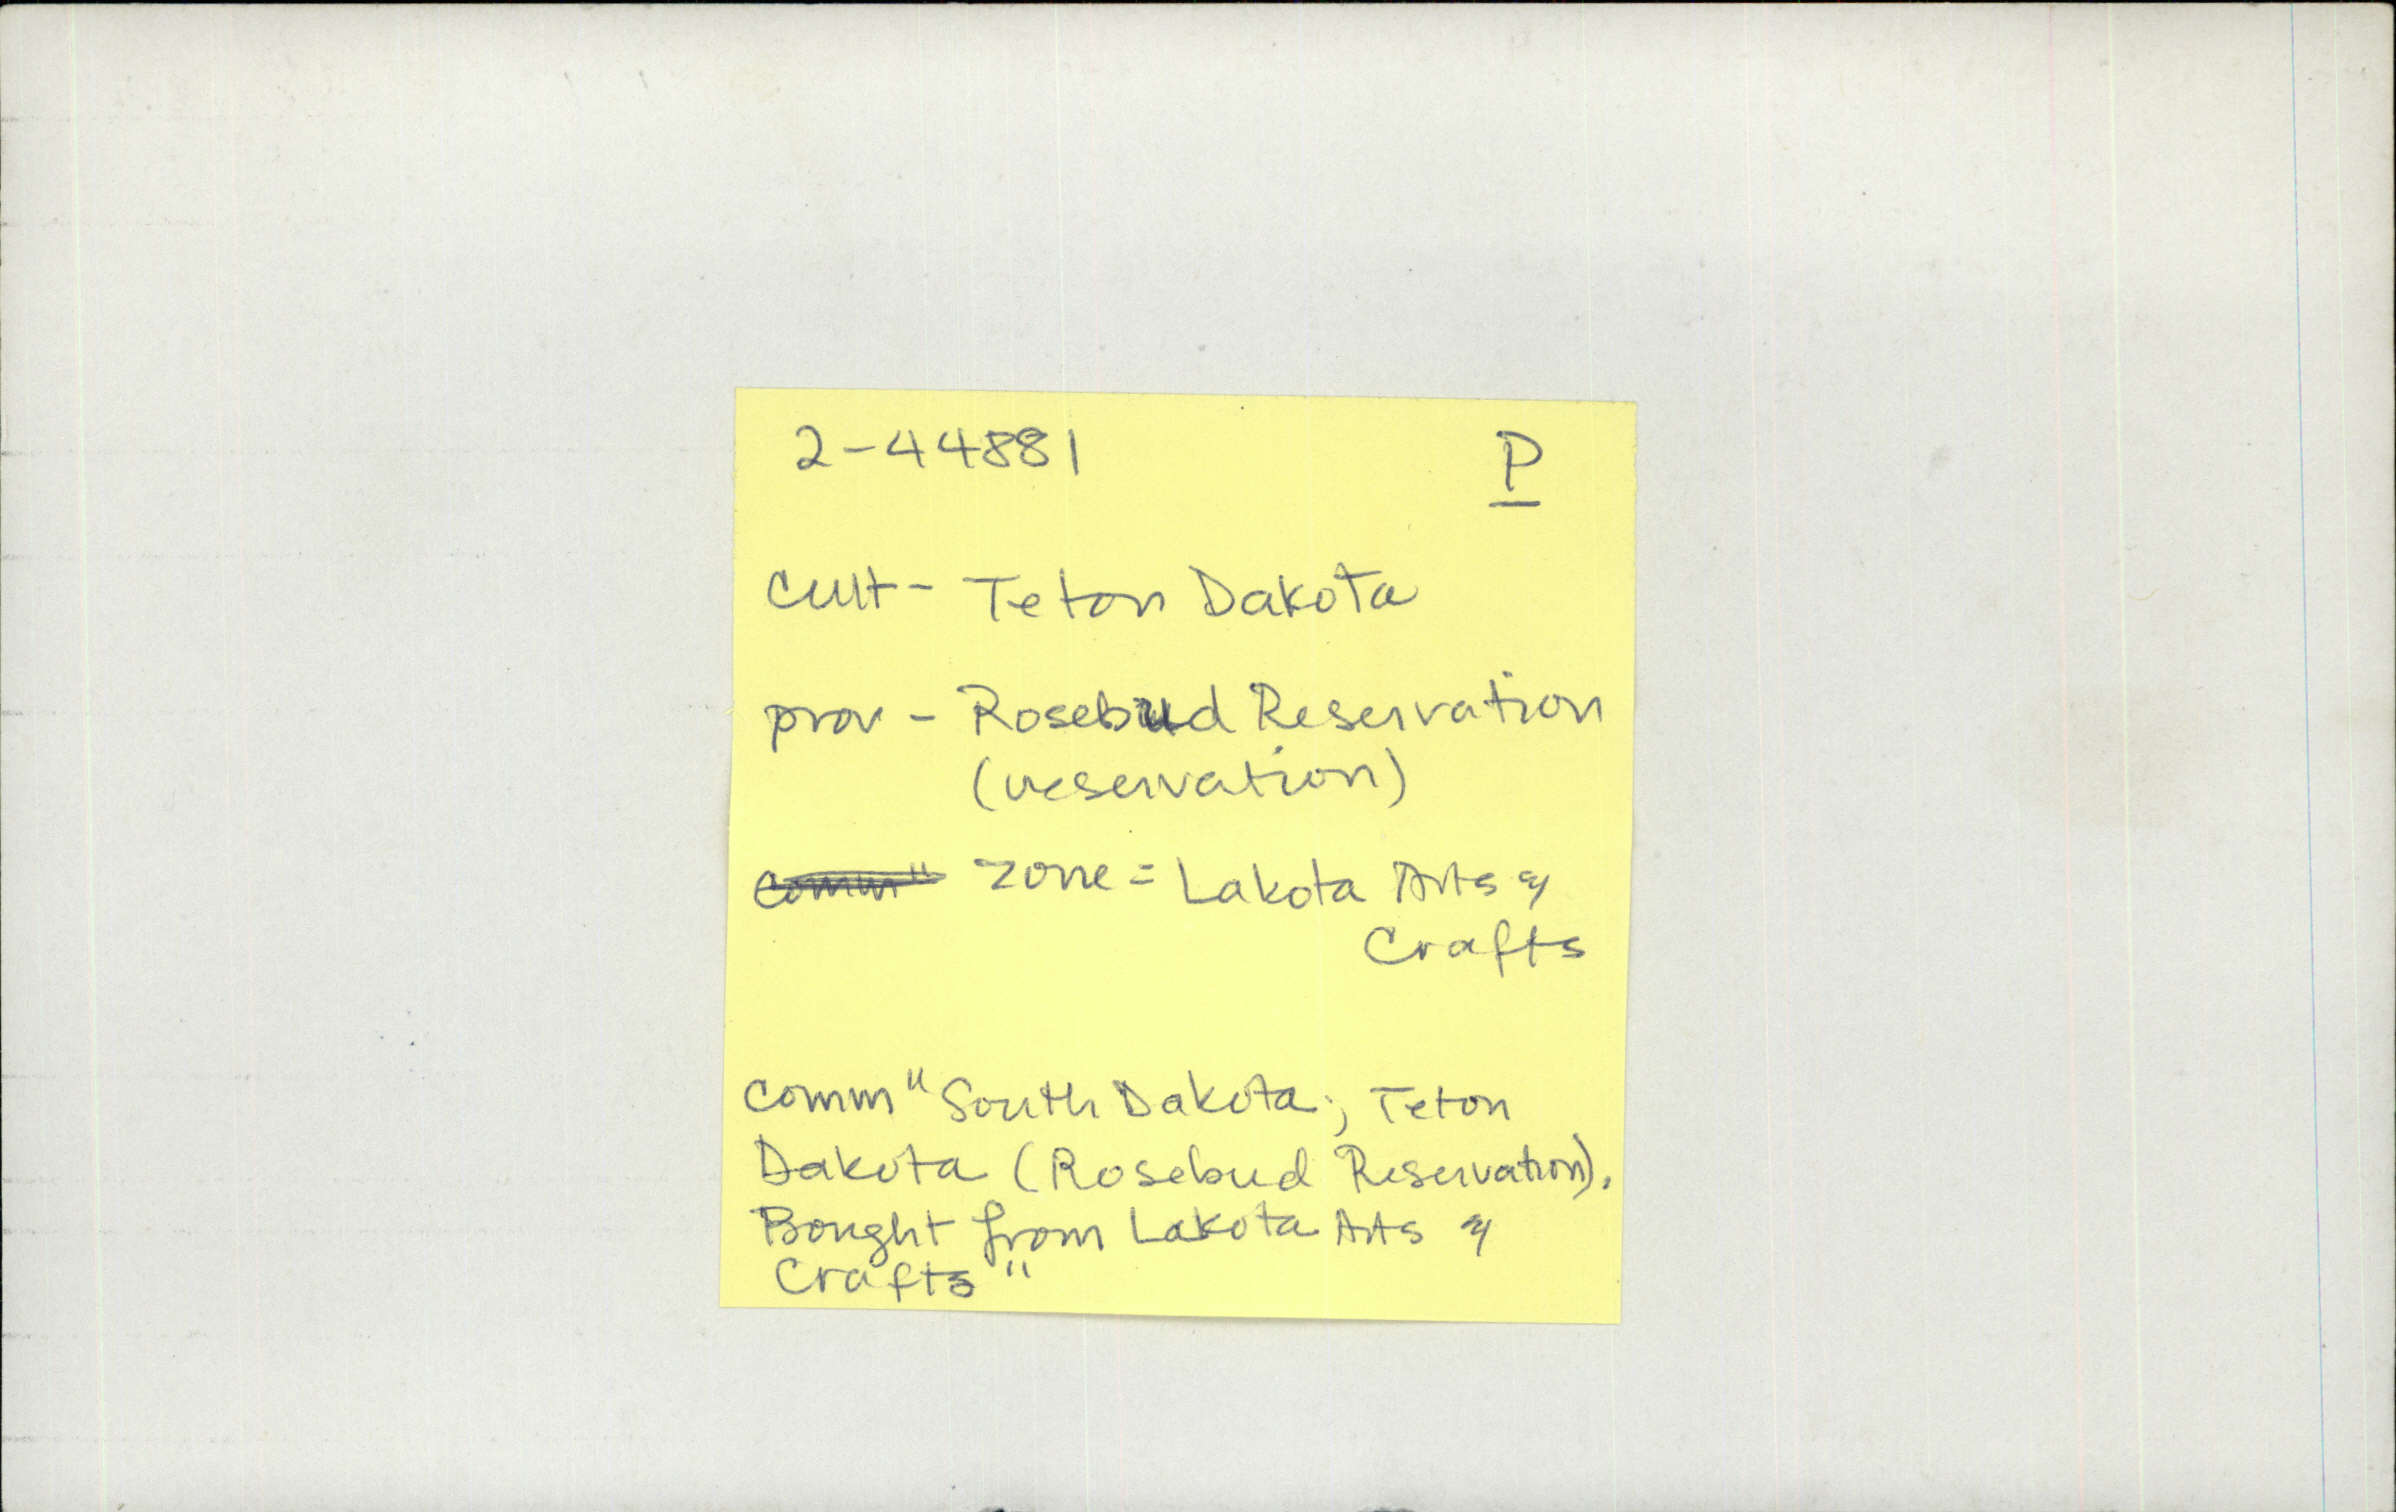 2-44881 P
cult- Teton Dakota
prov - Rosebud Reservation
(reservation)
comm" zone = Lakota Arts &
Crafts
comm "South Dakota; Teton
Dakota (Rosebud Reservation).
Bought from Lakota Arts &
Crafts"